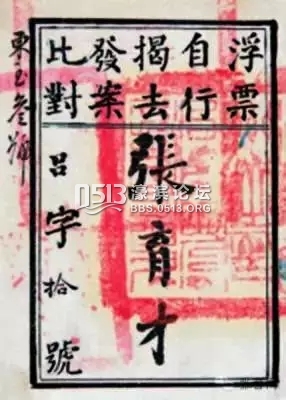 浮票
自行
揭去
發案
比對
張育才
呂字拾號
東玉叁號
0513 濠滨论坛
BBS.0513.ORG